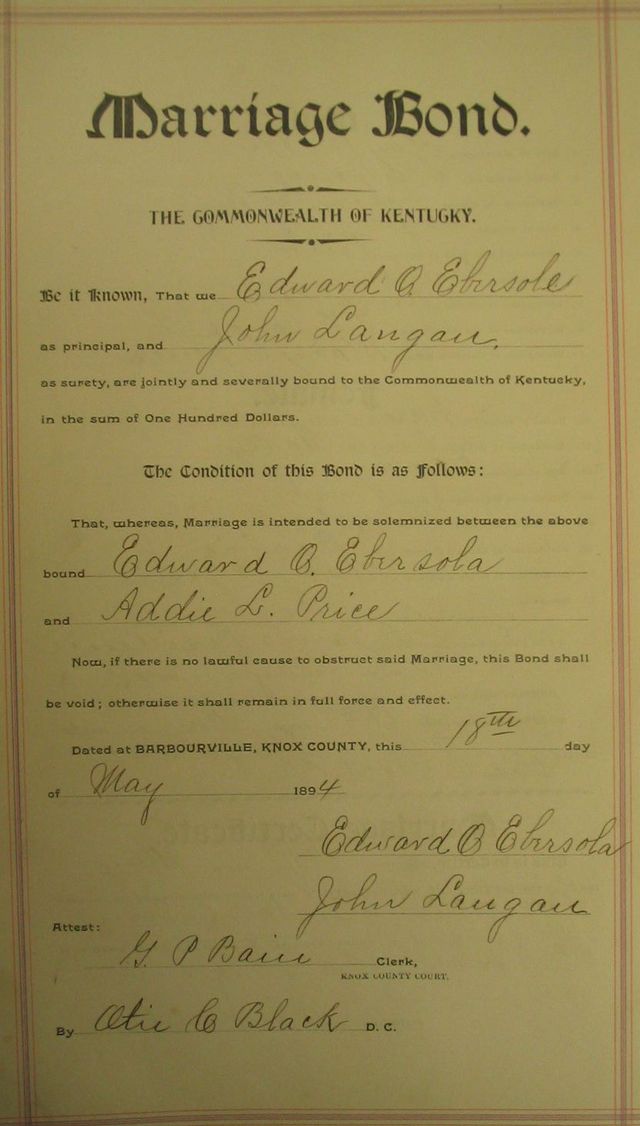 Marriage Bond.
THE COMMONWEALTH OF KENTUCKY.
Be it known, That we Edward O. Ebersole
as principal, and John Langan,
as surety, are jointly and severally bound to the Commonwealth of Kentucky,
in the sum of One Hundred Dollars.
The Condition of this Bond is as Follows:
That, whereas, Marriage is intended to be solemnized between the above
bound Edward O. Ebersola
and Addie L. Price
Now, if there is no lawful cause to obstruct said Marriage, this Bond shall
be void; otherwise it shall remain in full force and effect.
Dated at BARBOURVILLE, KNOX COUNTY, this 18th day
of May 1894
Edward O Ebersola
John Langan
Attest:
G. P Bain Clerk,
KNOX COUNTY COURT.
By Otie C Black D. C.